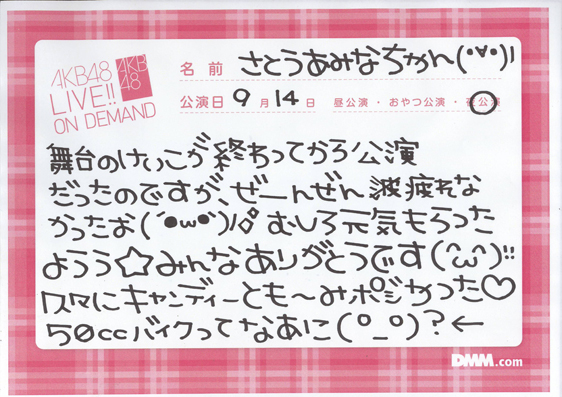 AKB48
LIVE!!
ON DEMAND
AKB
48
名前 さとうあみなちゃん(°∀°)!
公演日 9月14日 昼公演・おやつ公演・夜公演
舞台のけいこが終わってから公演
だったのですが、ぜーんぜん疲れな
かったお(´●ω●`)ﾉむしろ元気もらった
ようう☆みんなありがとうです(^ω^)!!
久々にキャンディーとも〜みポジかった♡
50ccバイクってなあに(°_°)?←
DMM.com